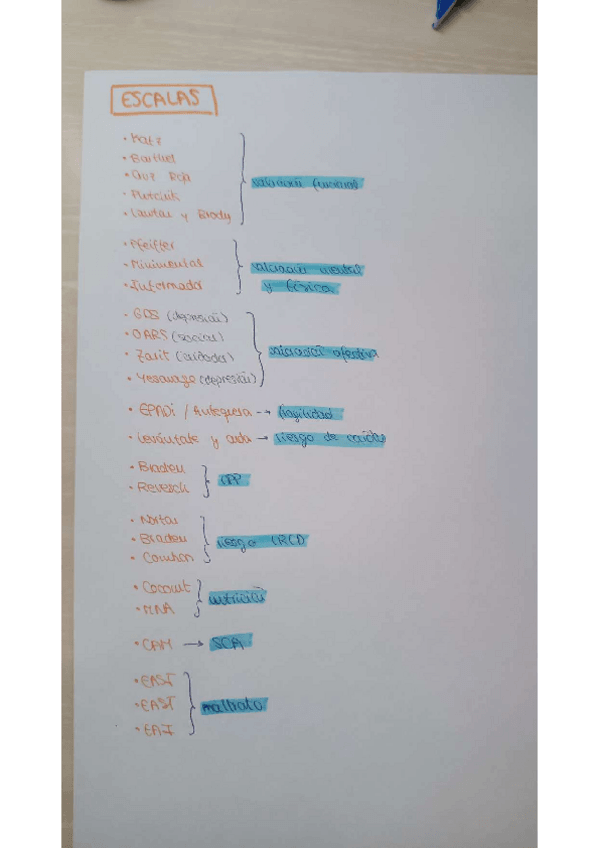 ESCALAS
• Katz
• Barthel
• Cruz Roja
• Plutchik
• Lawton y Brody
valoración funcional
• Pfeiffer
• Minimental
• Informador
valoración mental
y física
• GDS (depresión)
• OARS (social)
• Zarit (cuidador)
• Yesavage (depresión)
valoración afectiva
• EPADI / Anteguera → fragilidad
• Levántate y anda → riesgo de caídas
• Braden
• Revesch
UPP
• Norton
• Braden
• Comhon
riesgo LRCD
• Coconut
• MNA
nutrición
• CAM → SCA
• EAST
• EAST
• EAI
maltrato